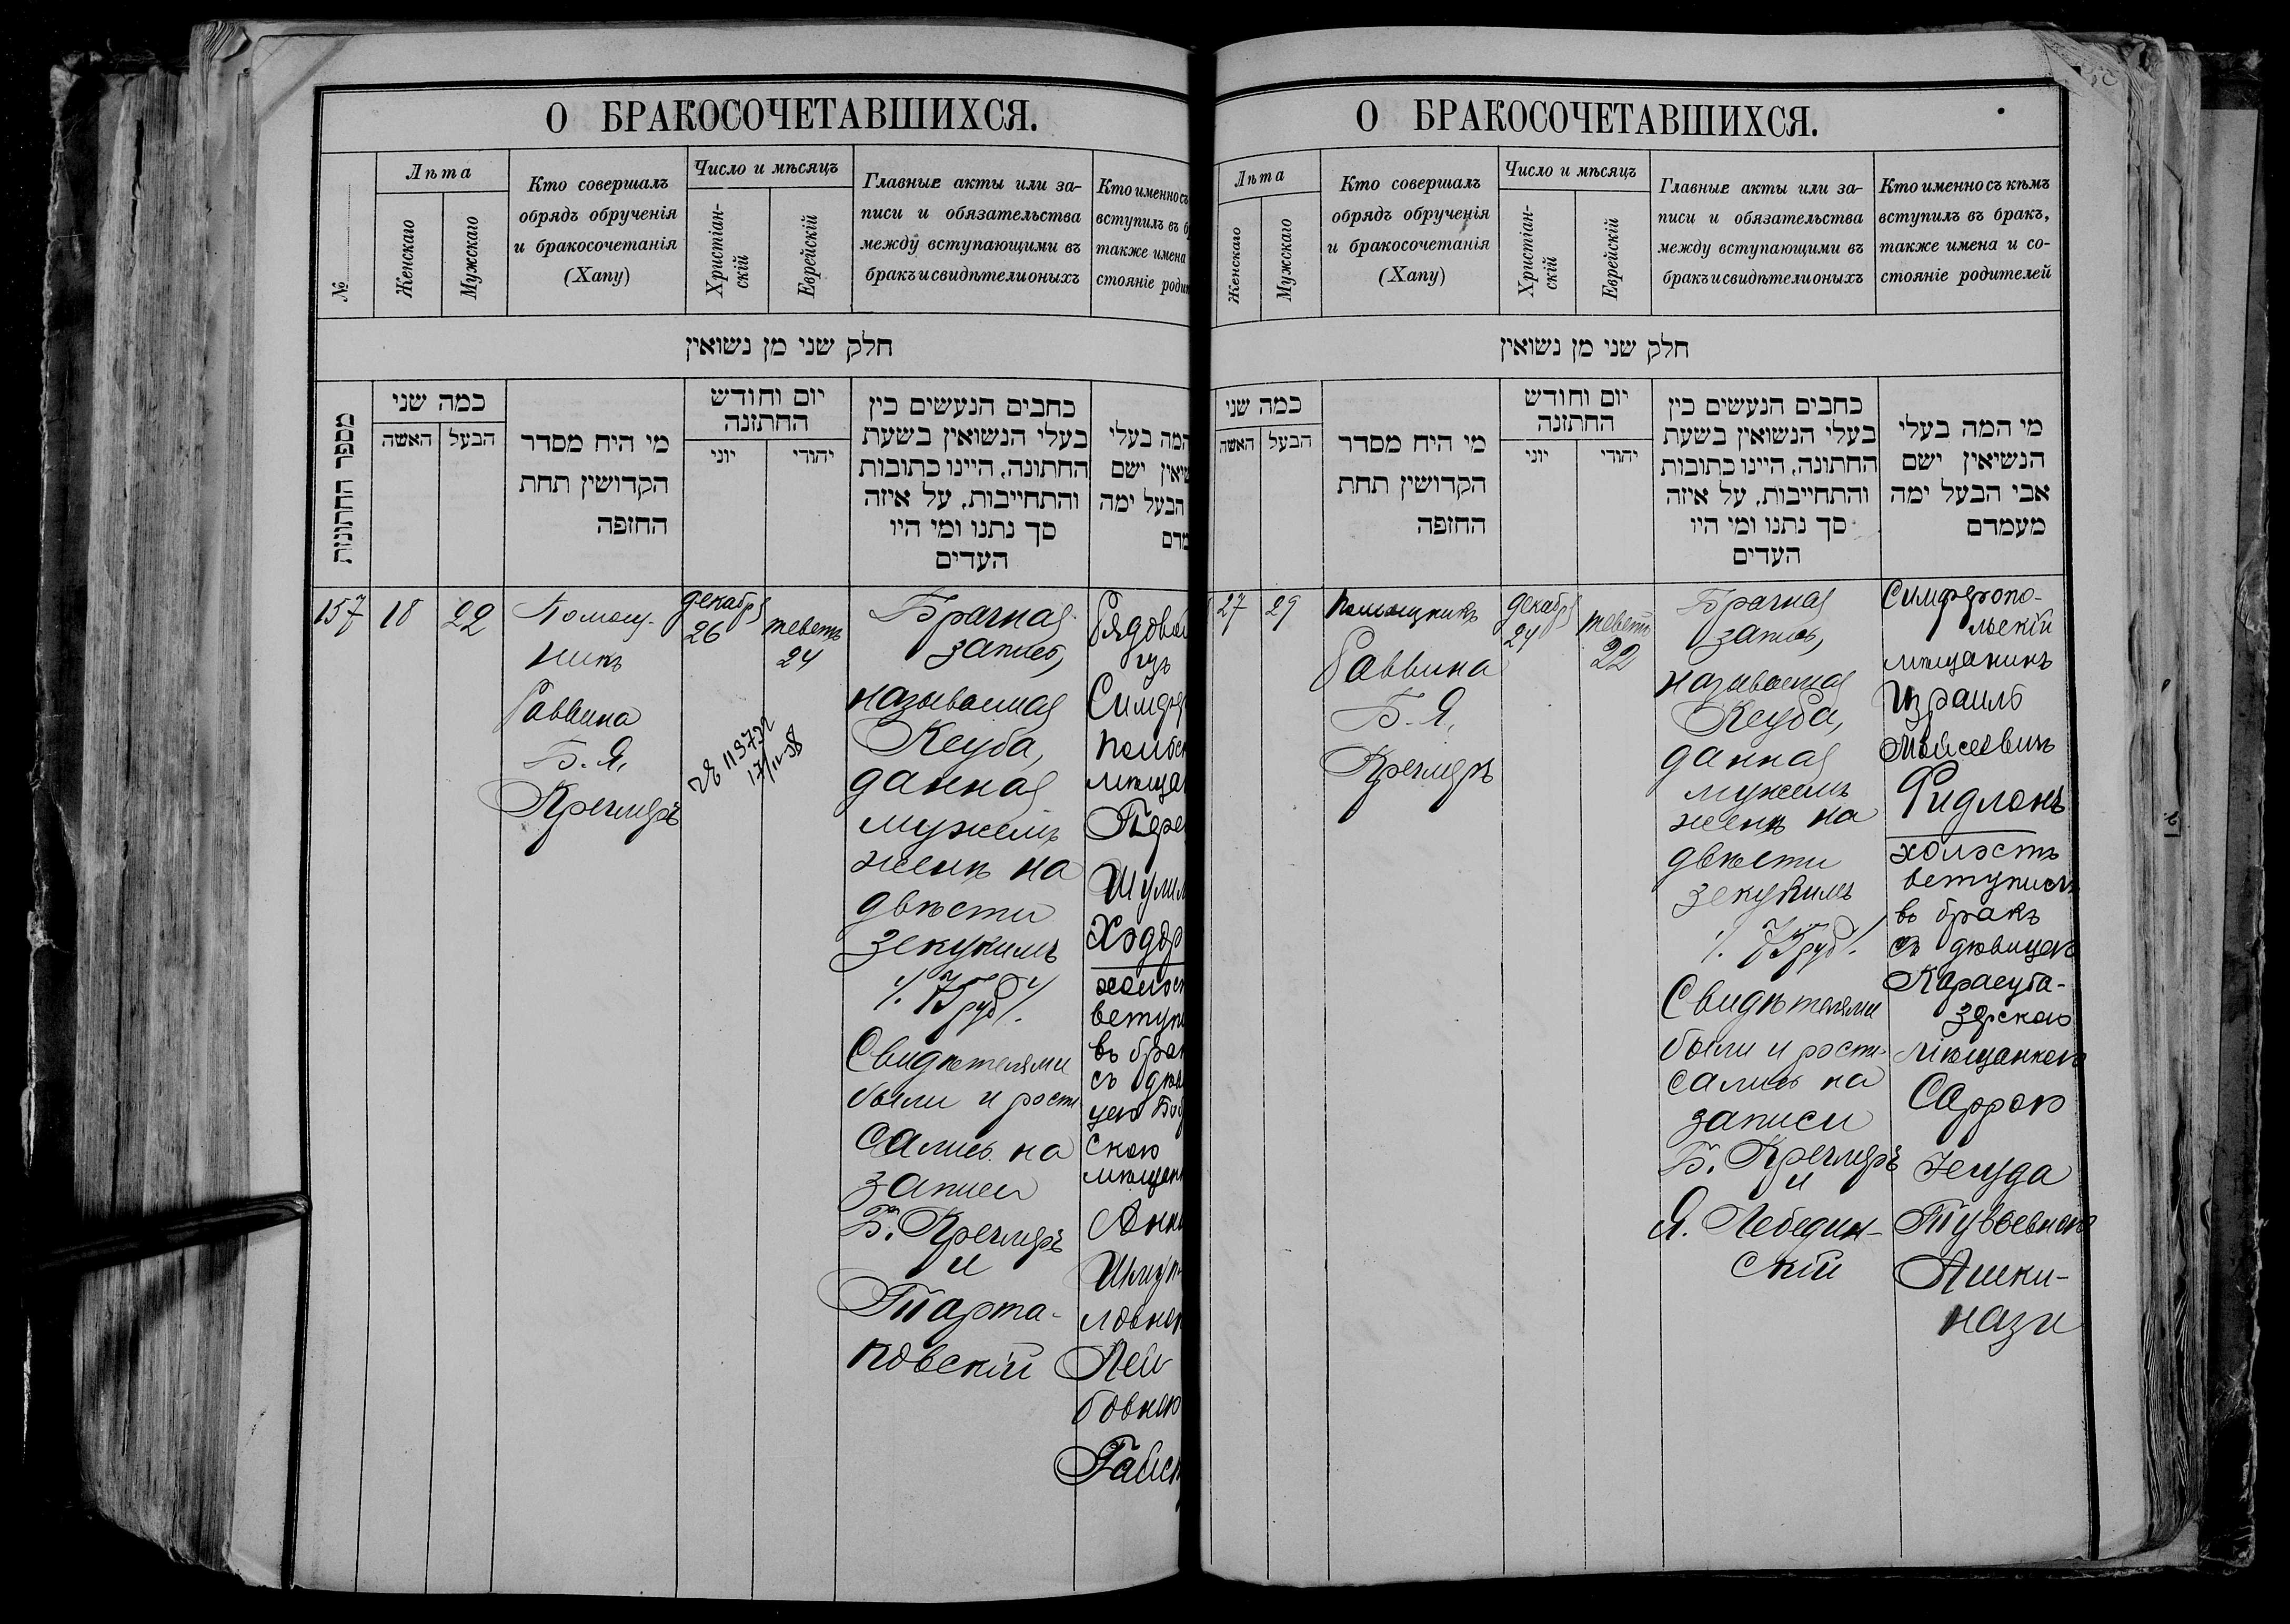 О БРАКОСОЧЕТАВШИХСЯ.
№
Лѣта
Женскаго
Мужскаго
Кто совершалъ
обрядъ обрученія
и бракосочетанія
(Хапу)
Число и мѣсяцъ
Христіан-
скій
Еврейскій
Главные акты или за-
писи и обязательства
между вступающими въ
бракъ и свидѣтели оныхъ
Кто именно съ
вступилъ въ б
также имена
стояніе роди
חלק שני מן נשואין
מספר החתונות
כמה שני
האשה
הבעל
מי היח מסדר
הקדושין תחת
החזפה
יום וחודש
החתזנה
יוני
יהודי
כחבים הנעשים כין
בעלי הנשואין בשעת
החתונה, היינו כתובות
והתחייבות, על איזה
סך נתנו ומי היו
העדים
המה בעלי
שיאין ישם
הבעל ימה
מדם
157
18
22
Помощ-
никъ
Раввина
Б. Я.
Кречмеръ
декабря
26
тевета
24
Брачная
запись,
называемая
Кеуба,
данная
мужемъ
женѣ на
двѣсти
зекукимъ
/. 75 руб /.
Свидѣтелями
были и роспи-
сались на
записи
Б. Кречмеръ
и
Тарта-
ковскій
Рядовой
изъ
Симфе
польск
мѣща
Пере
Шулим
Ходор
холост
вступи
въ брак
съ дѣв
цею
скою
мѣщан
Анн
Шмуй-
ловною
Лей-
бовною
Гайс
О БРАКОСОЧЕТАВШИХСЯ.
Лѣта
Женскаго
Мужскаго
Кто совершалъ
обрядъ обрученія
и бракосочетанія
(Хапу)
Число и мѣсяцъ
Христіан-
скій
Еврейскій
Главные акты или за-
писи и обязательства
между вступающими въ
бракъ и свидѣтели оныхъ
Кто именно съ кѣмъ
вступилъ въ бракъ,
также имена и со-
стояніе родителей
חלק שני מן נשואין
כמה שני
האשה
הבעל
מי היח מסדר
הקדושין תחת
החזפה
יום וחודש
החתזנה
יוני
יהודי
כחבים הנעשים כין
בעלי הנשואין בשעת
החתונה, היינו כתובות
והתחייבות, על איזה
סך נתנו ומי היו
העדים
מי המה בעלי
הנשיאין ישם
אבי הבעל ימה
מעמדם
27
29
Помощникъ
Раввина
Б. Я.
Кречмеръ
декабря
24
тевета
22
Брачная
запись,
называемая
Кеуба,
данная
мужемъ
женѣ на
двѣсти
зекукимъ
/. 75 руб /.
Свидѣтелями
были и роспи-
сались на
записи
Б. Кречмеръ
и
Я. Лебедин-
скій
Симферопо-
льскій
мѣщанинъ
Израиль
Мойсеевичъ
Фидлонъ
холостъ
вступилъ
въ бракъ
съ дѣвицею
Карасуба-
зарскою
мѣщанкою
Саррою
Іегуда
Тувьевною
Ашки-
нази